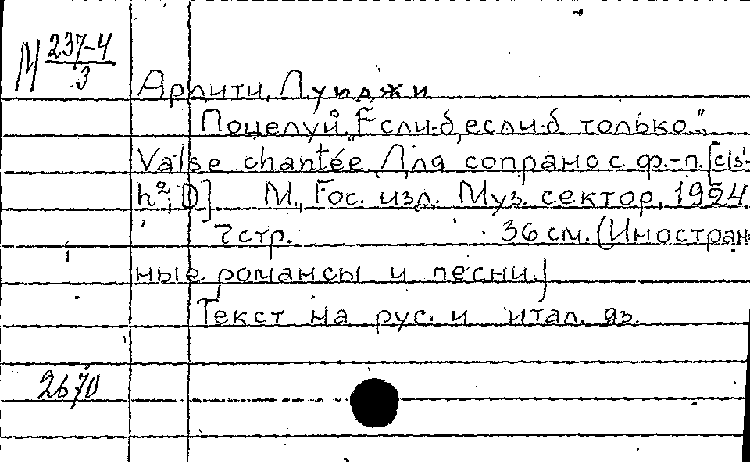 М 237-4
3
Ардити, Луиджи
Поцелуй. „Если-б, если-б только..."
Valse chantée. Для сопрано с ф.-п. [cis¹-
h²; D]. М., Гос. изд. Муз. сектор, 1924.
7 стр. 36 см. (Иностран-
ные романсы и песни.)
Текст на рус. и итал. яз.
2670